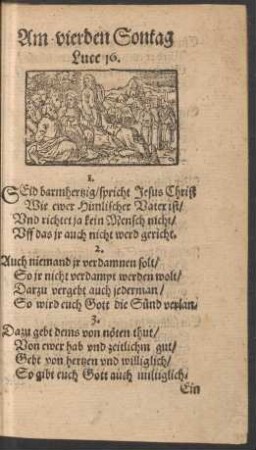 Am vierden Sontag
Luce 16.
1.
SEid barmhertzig/spricht Jesus Christ
Wie ewer Himlischer Vater ist/
Vnd richtet ja kein Mensch nicht/
Vff das jr auch nicht werd gericht.
2.
Auch niemand jr verdamnen solt/
So jr nicht verdampt werden wolt/
Darzu vergebt auch jederman/
So wird euch Gott die Sünd verlan.
3.
Dazu gebt dems von nöten thut/
Von ewer hab vnd zeitlichm gut/
Gebt von hertzen vnd williglich/
So gibt euch Gott auch miltiglich.
Ein